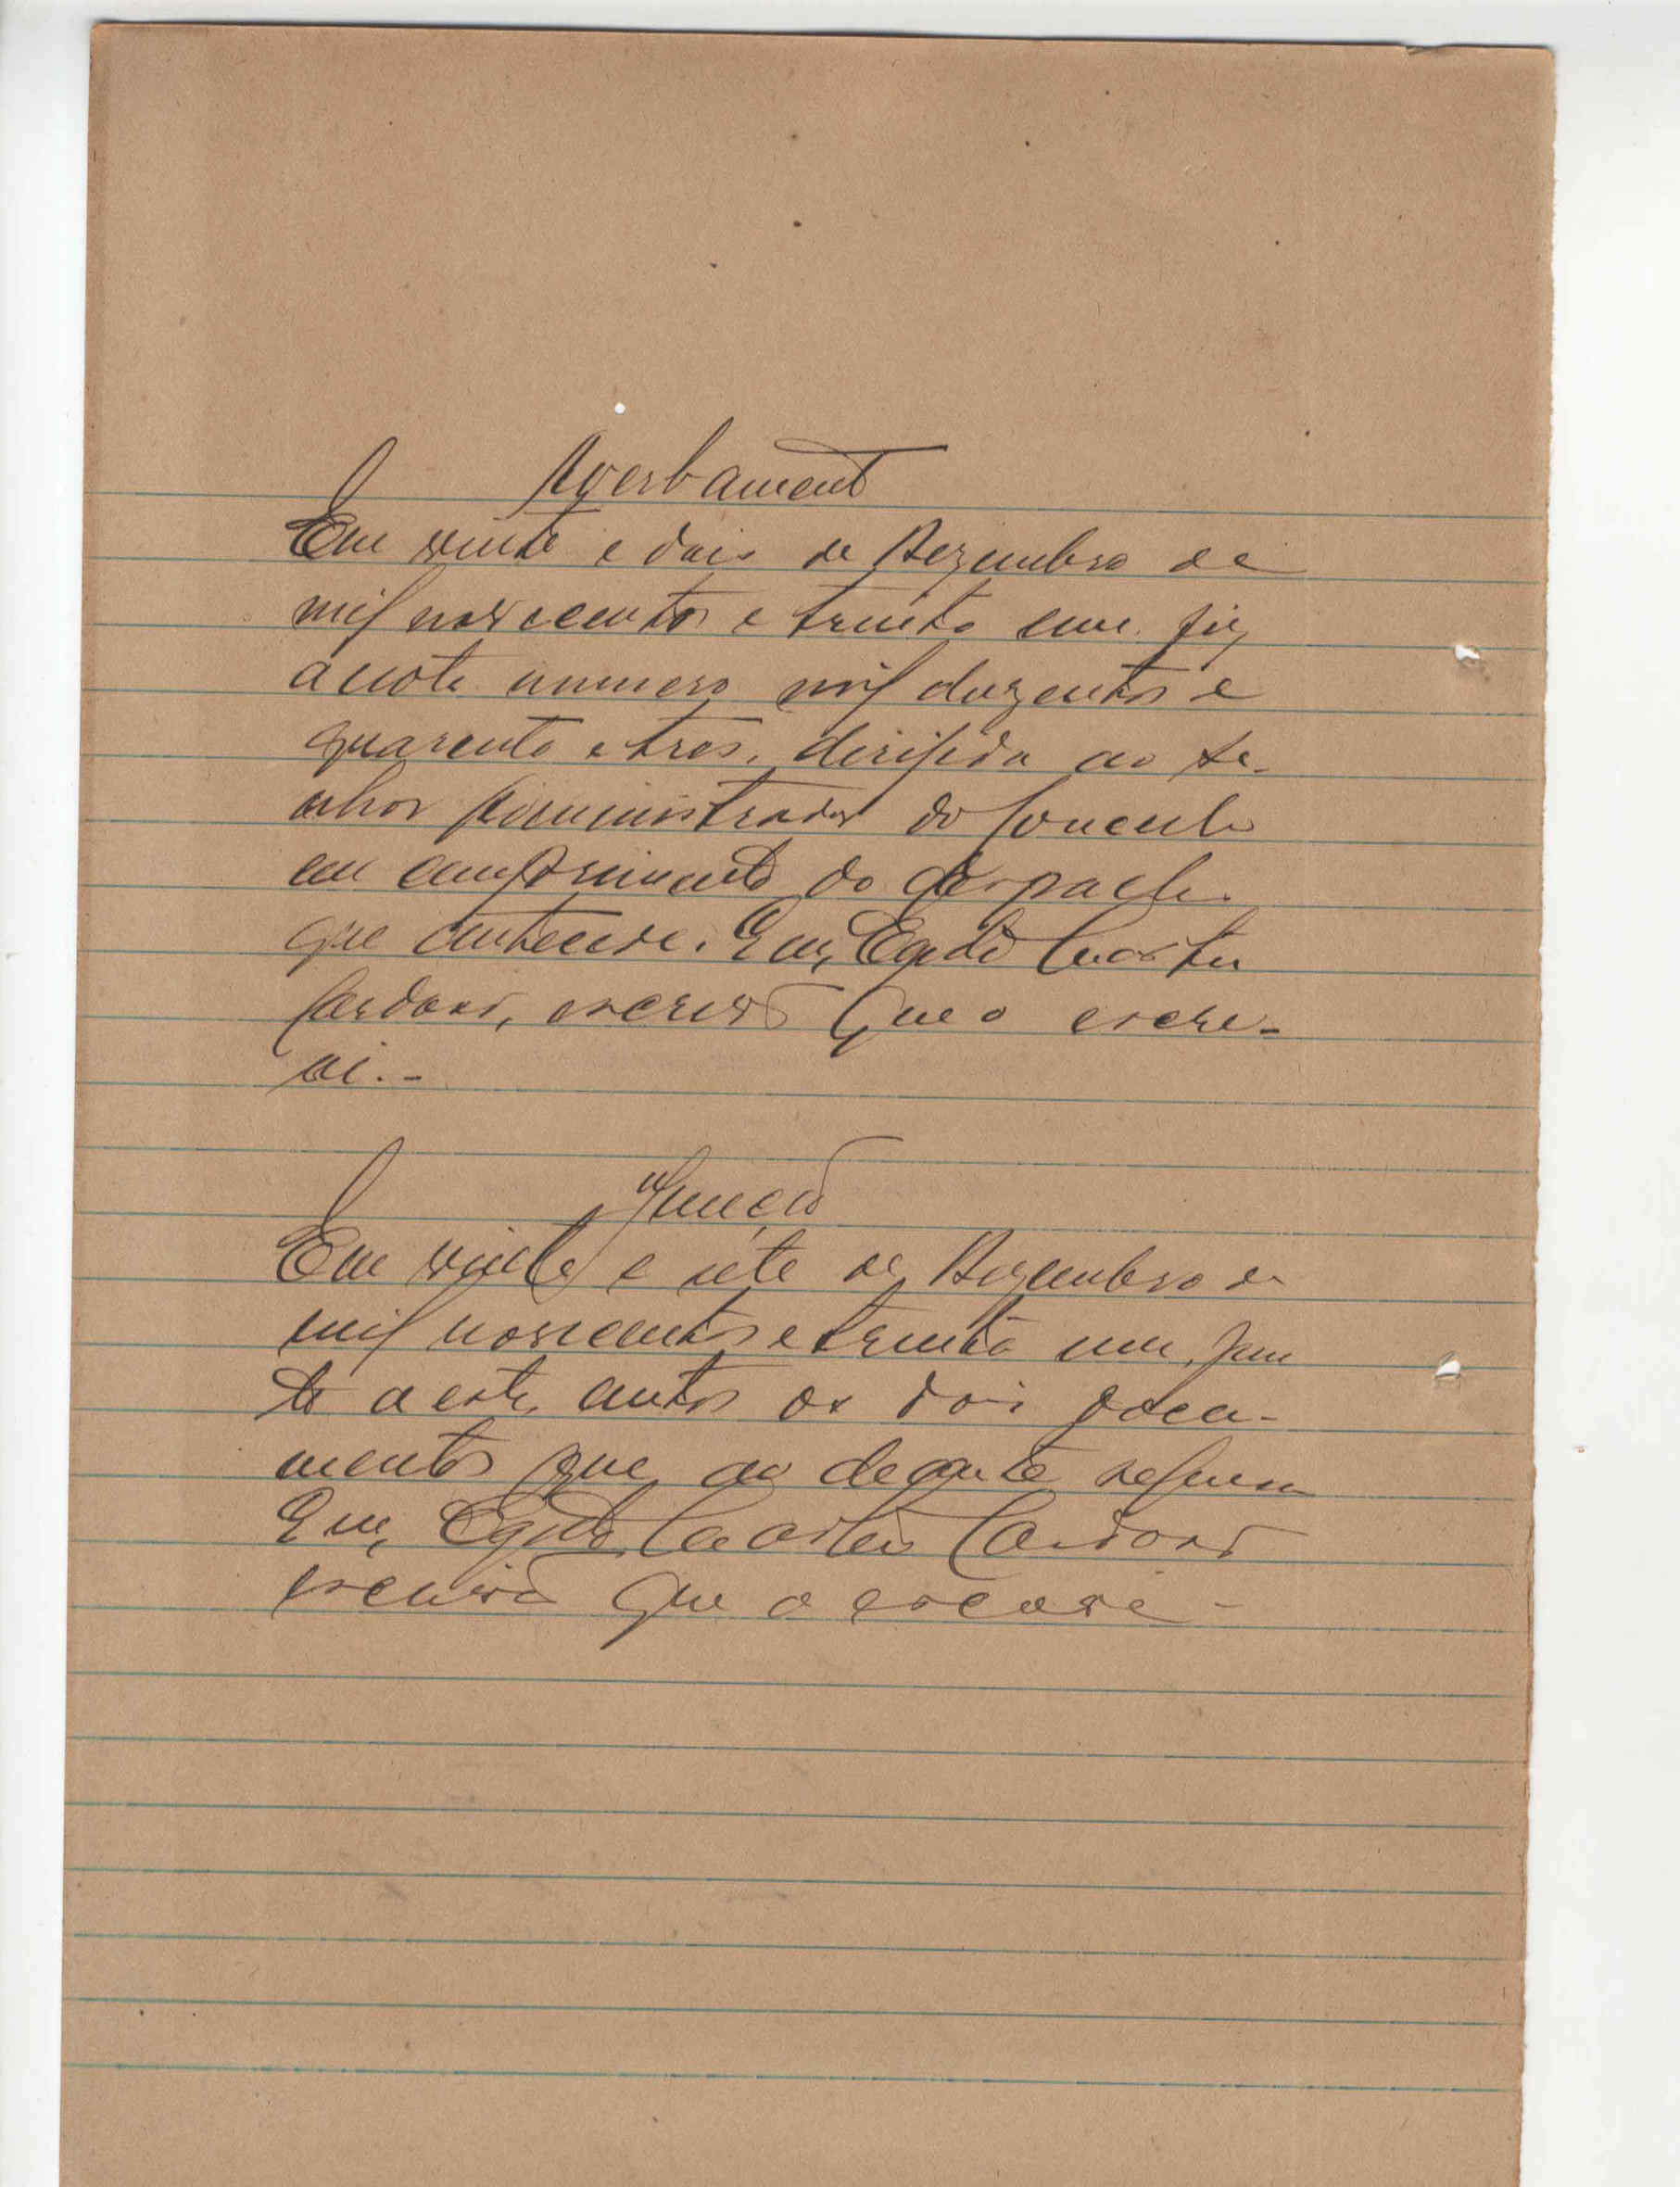 Averbamento
Em vinte e dois de Dezembro de
mil novecentos e trinta e um fiz
a nota numero mil duzentos e
quarenta e tres, dirigida ao Se-
nhor Administrador do Concelho
em cumprimento do despacho
que antecede. Eu, Egidio
Cardoso, escrivão que o escre-
vi.-
Junção
Em vinte e sete de Dezembro de
mil novecentos e trinta um, jun
to a estes autos os dois docu-
mentos que ao deante seguem
Eu, Egidio Cardoso
escrivão que o escrevi-